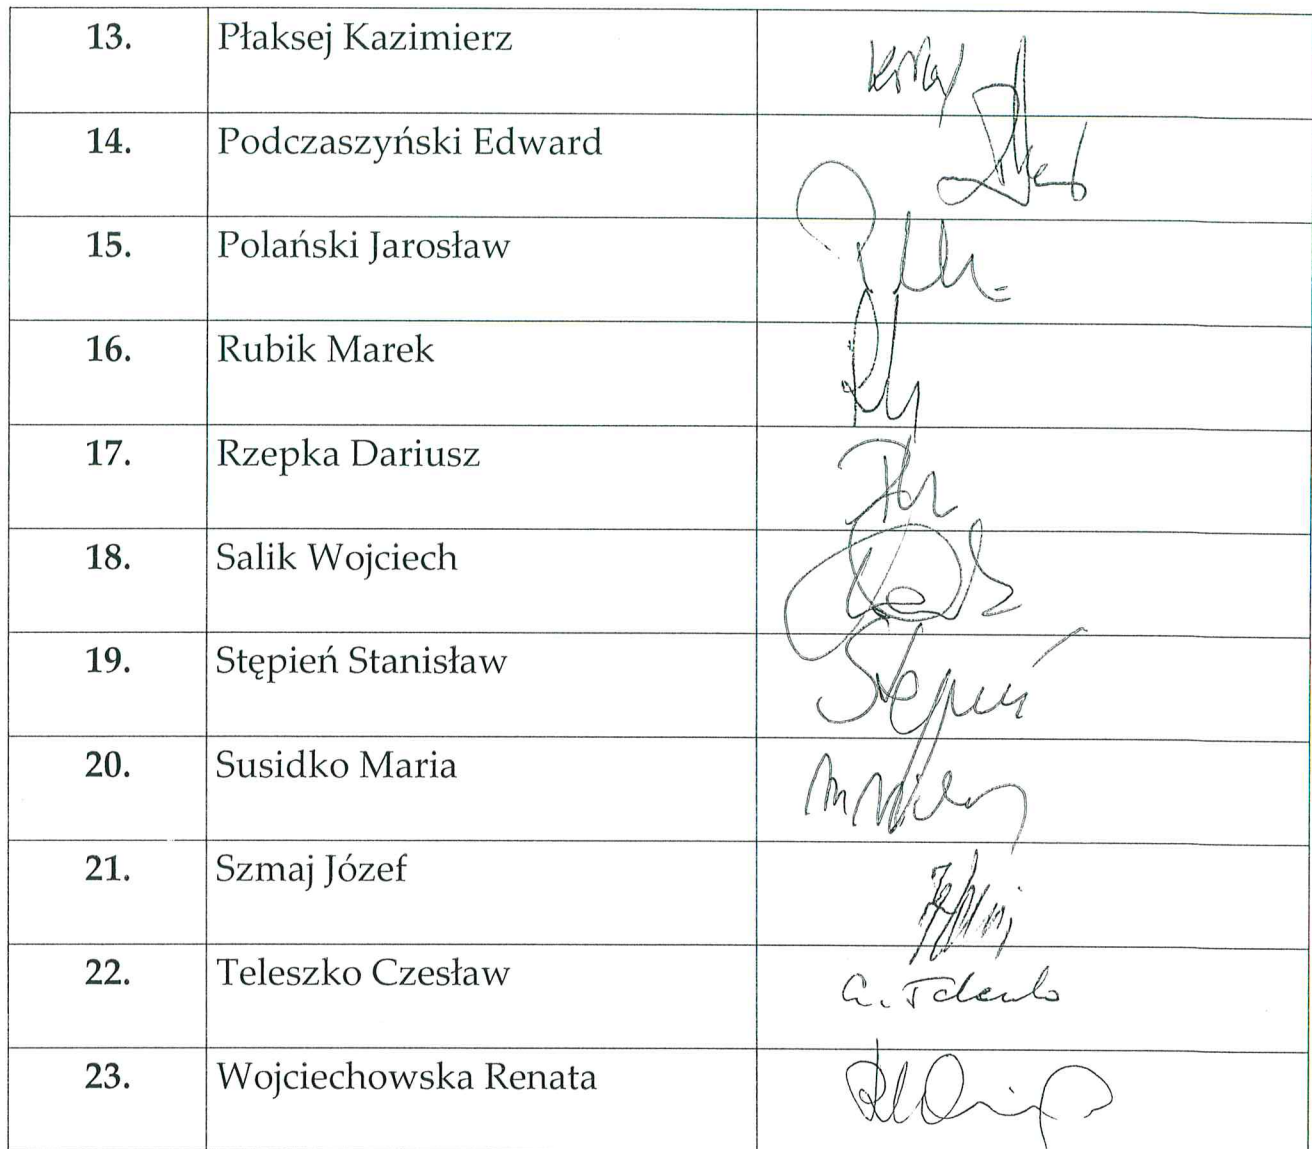 13. Płaksej Kazimierz
14. Podczaszyński Edward
15. Polański Jarosław
16. Rubik Marek
17. Rzepka Dariusz
18. Salik Wojciech
19. Stępień Stanisław Stępień
20. Susidko Maria
21. Szmaj Józef
22. Teleszko Czesław
23. Wojciechowska Renata